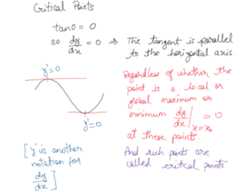 Critical Points
tanθ = 0
so dy/dx = 0 ⇒ The tangent is parallel
to the horizontal axis
y'=0
y'=0
Regardless of whether the
point is a local or
global maximum or
minimum dy/dx | = 0
at these points
And such points are
called critical points
[ y' is another
notation for
dy/dx ]